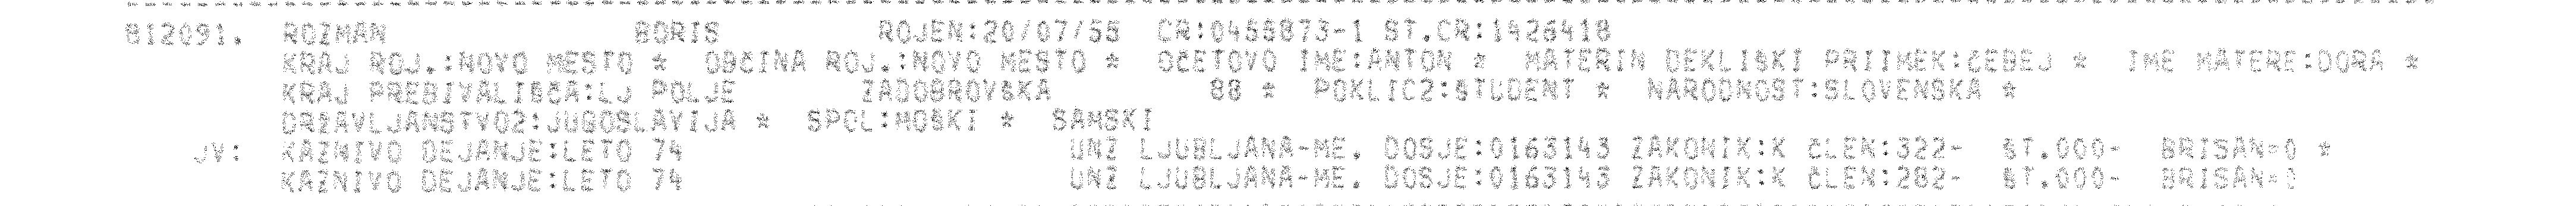 812091. ROZMAN BORIS ROJEN:20/07/55 CR:0455873-1 ST.CR:1426418
KRAJ ROJ.:NOVO MESTO * OBČINA ROJ.:NOVO MESTO * OČETOVO IME:ANTON * MATERIN DEKLIŠKI PRIIMEK:ČEBEJ * IME MATERE:DORA *
KRAJ PREBIVALIŠČA:LJ POLJE ZADOBROVŠKA 88 * POKLIC2:ŠTUDENT * NARODNOST:SLOVENSKA *
DRŽAVLJANSTVO2:JUGOSLAVIJA * SPOL:MOŠKI * SAMSKI
JV: KAZNIVO DEJANJE:LETO 74 UNZ LJUBLJANA-ME. DOSJE:0163143 ZAKONIK:K ČLEN:322- ŠT.000- BRISAN=0 *
KAZNIVO DEJANJE:LETO 74 UNZ LJUBLJANA-ME. DOSJE:0163143 ZAKONIK:K ČLEN:282- ŠT.000- BRISAN=0